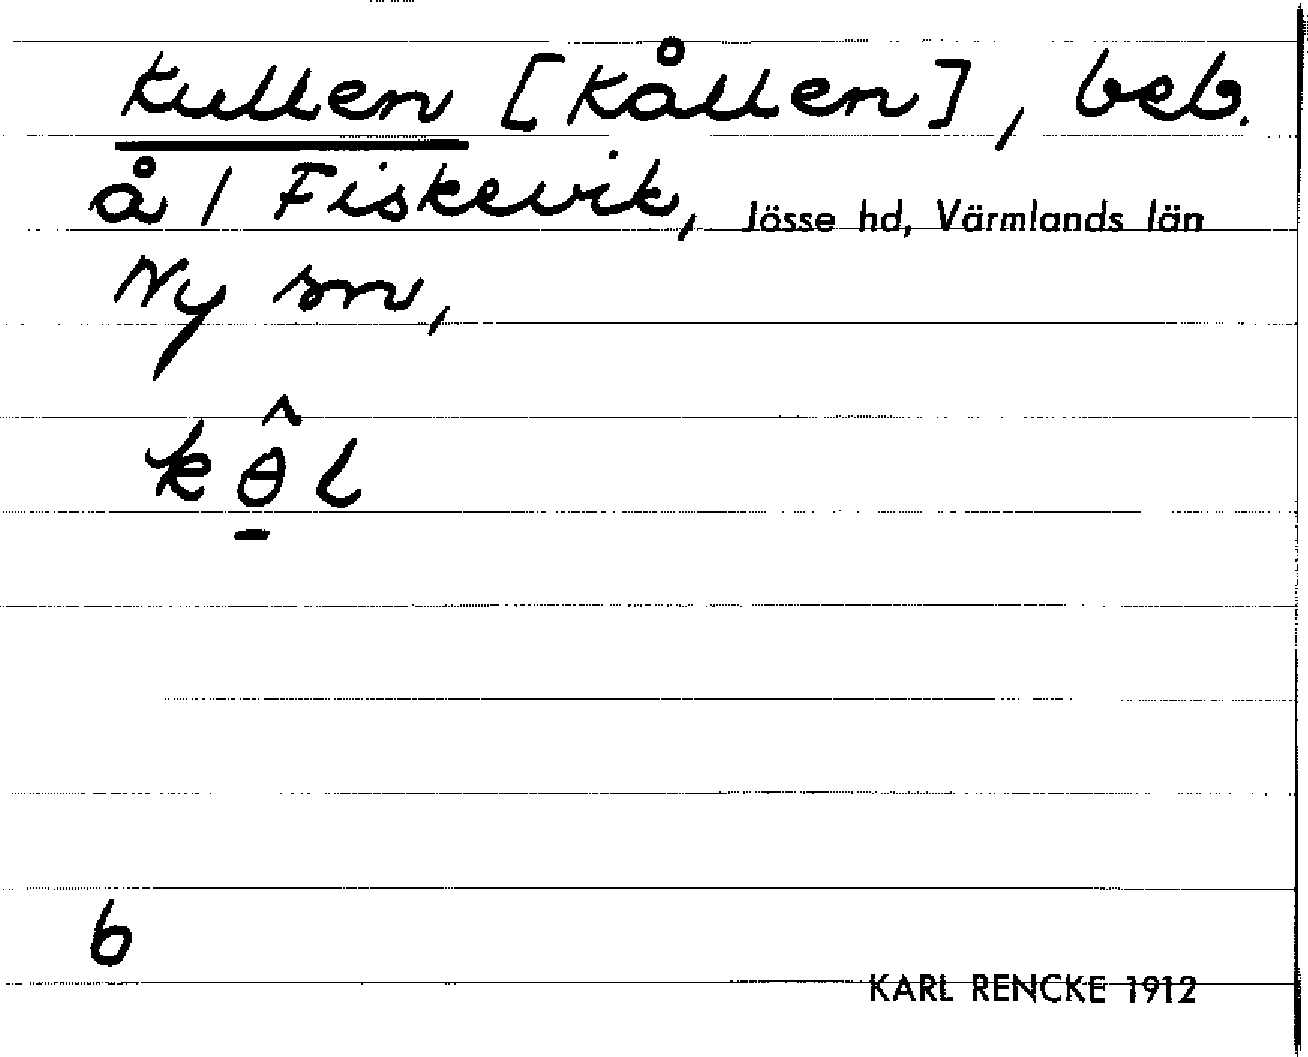 Kullen [Kållen], beb.
å / Fiskevik, Jösse hd, Värmlands län
Ny sn,
kθ̱̂l
6
KARL RENCKE 1912